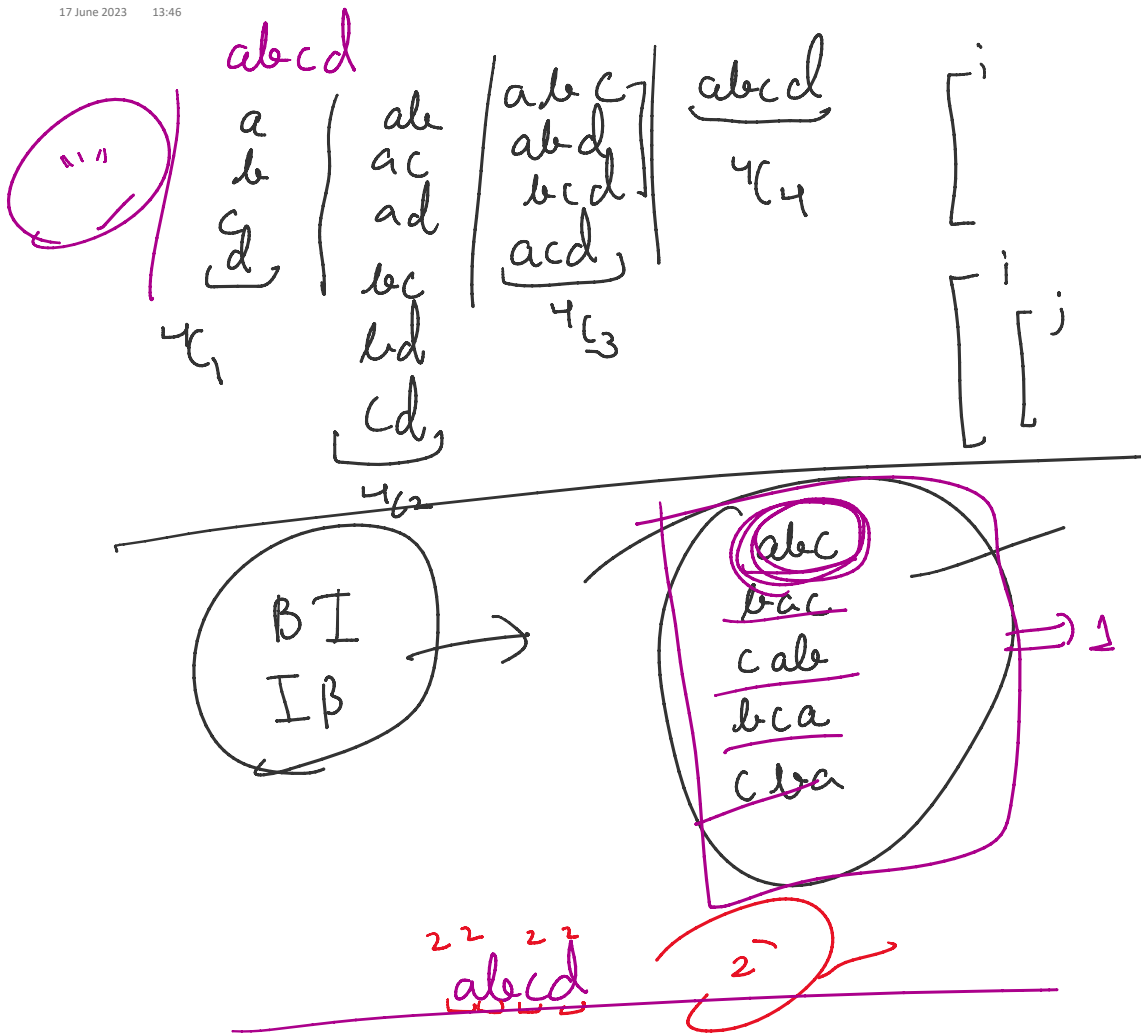 17 June 2023 13:46
abcd
""
a
b
c
d
4C1
ab
ac
ad
bc
bd
cd
4C2
abc
abd
bcd
acd
4C3
abcd
4C4
i
i
j
BI
IB
abc
bac
cab
bca
cba
1
2 2 2 2
abcd
2